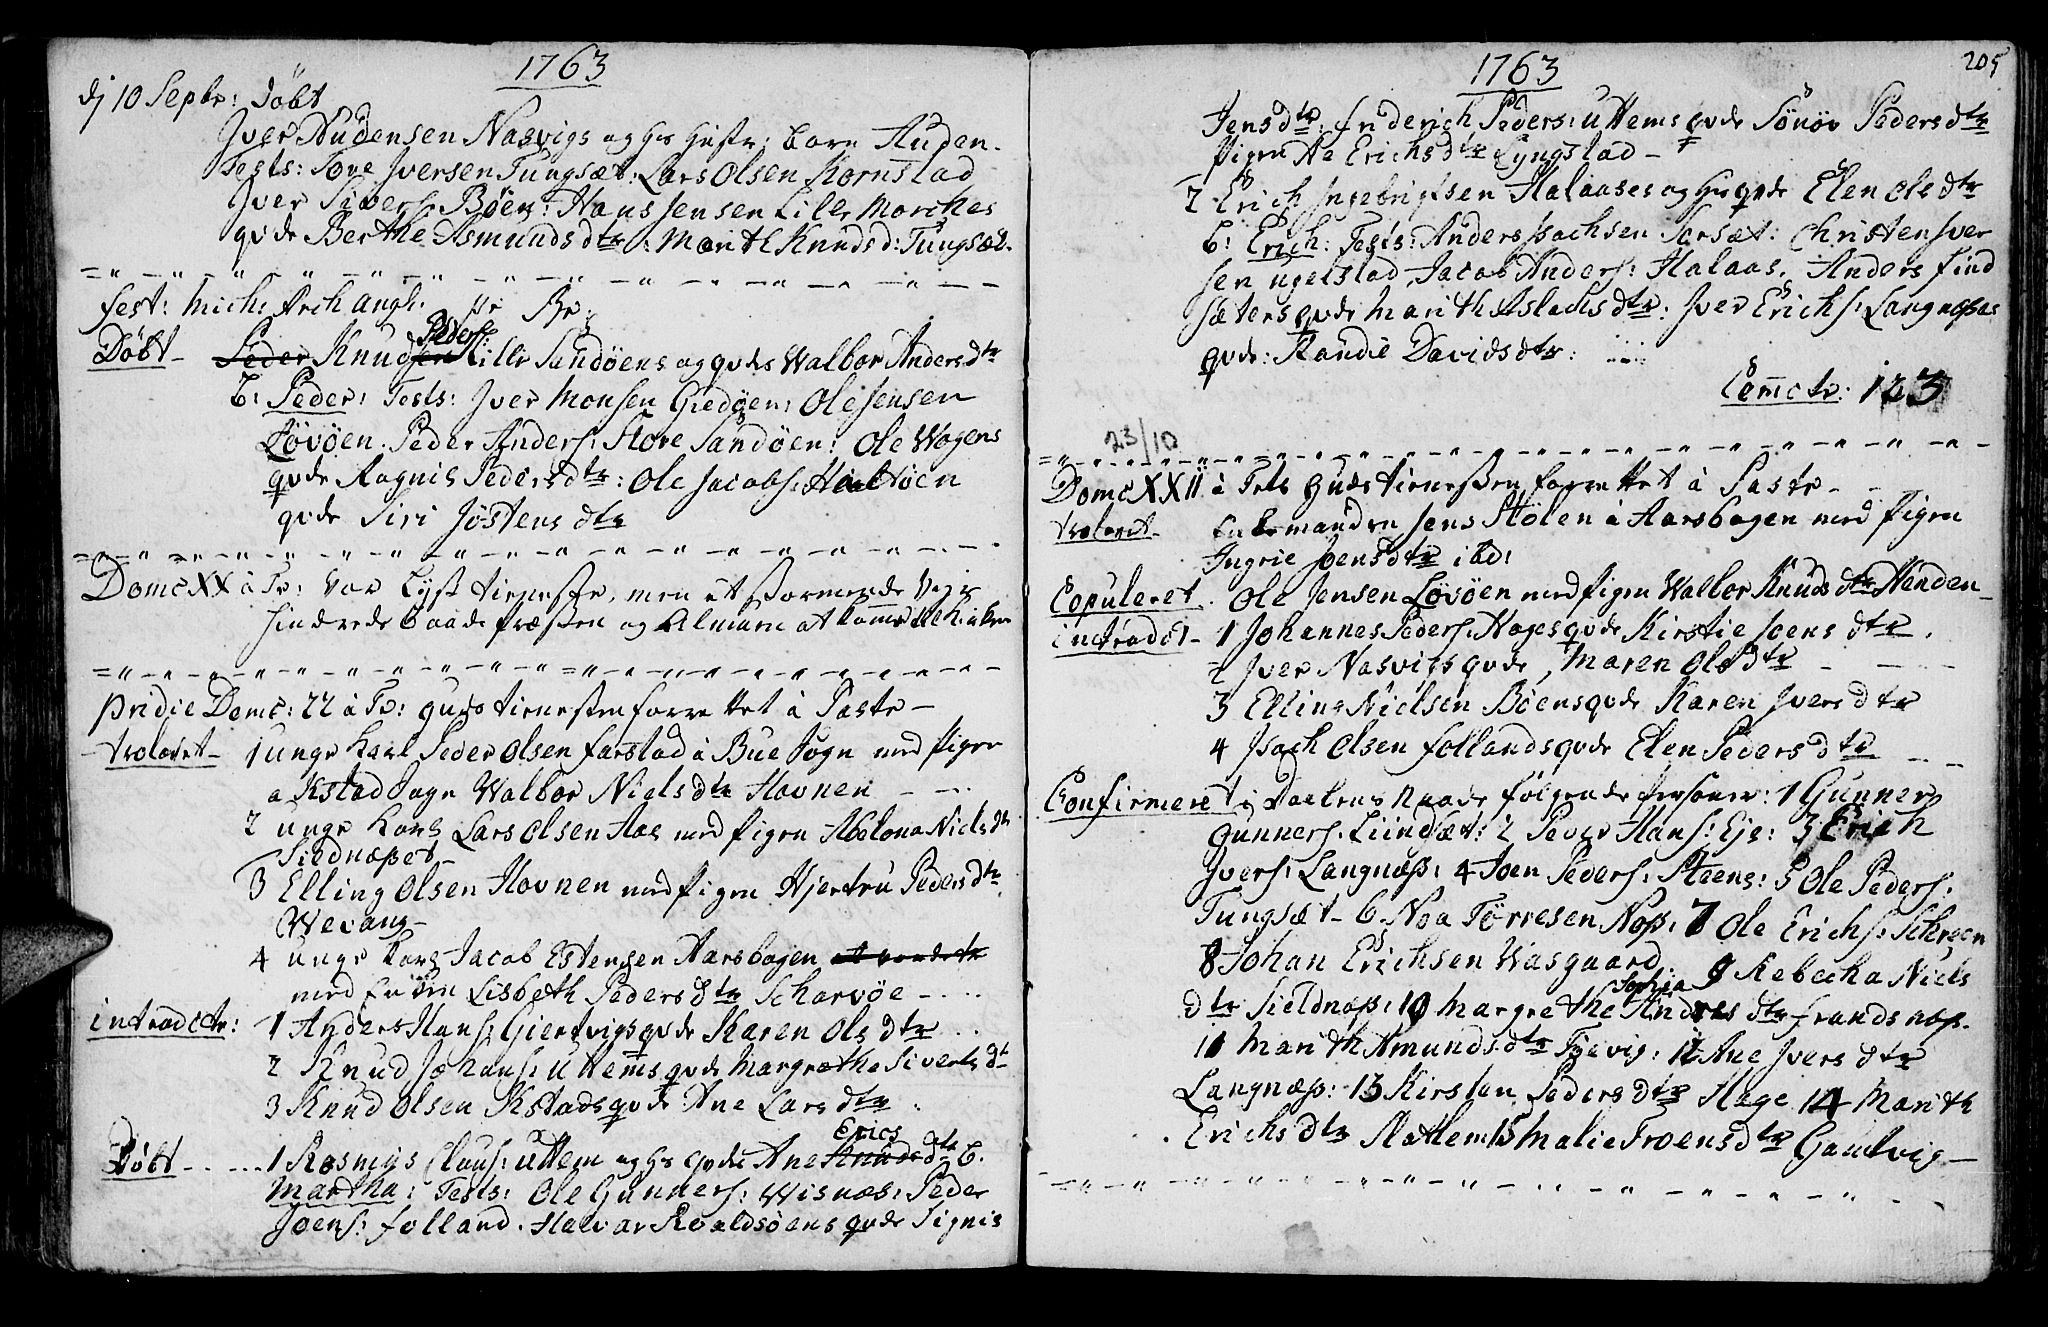 1763
dj 10 Septbr: Döbt
Jver Audensen Nasvigs og Hs Hustr: barn Auden.
Tests: Tore Jversen Tungsæt: Lars Olsen Kornstad
Jver Sivers: Böen: Hans Jensen Lille Morches
qvde Berthe Asmundsdtr: Marith Knudsd: Tungsæt.
Fest: Mich: Arch angl: pr Br:
Döbt - Peder Knudsen Peders: Lille Sandöens og qvdes Walbor Andersdtr
b: Peder: Tests: Jver Monsen Giedöen: Ole Jensen
Lövöen. Peder Anders: Store Sandöen: Ole Wogens
qvde Ragnil Pedersdtr: Ole Jacobs: Haalöen
qvde Siri Jöstensdtr
Domc XX à Tr: var Lyst tieneste, men et stormende Veir
hindrede baade Præsten og Almuen at komme til Kirken
pridie Domc: 22 à Tr: guds tienesten forrettet à Paste-
trolovet- 1 unge Karl Peder Olsen Farstad à Bue Sogn med Pigen
a Kstad Sogn Walbor Nielsdtr Hovnen
2 unge Karl Lars Olsen Aas med Pigen Abelona Nielsdtr
Sieldnæsset-
3 Elling Olsen Hovnen med Pigen Hjertru Pedersdtr
Wevang-
4 unge Karl Jacob Estensen Aarsbogen
med Enken Lisbeth Pedersdtr Scharvöe
introdctr: 1 Anders Hans: Giertvigs qvde Karen Olsdtr
2 Knud Johans: Uttems qvde Margrethe Sivertsdtr
3 Knud Olsen Kstads qvde Ane Larsdtr
Döbt 1 Rasmus Claus: Uttem og Hs qvde Ane Knudsdtr Erics b.
Martha: Tests: Ole Gunners: Wisnæs: Peder
Joens: Folland. Halvar Roaldsöens qvde Signis
1763
205
Jensdtr: Friderich Peders: Uttems qvde Sönöv Pedersdtr
Pigen Ae Erichsdtr Lyngstad-
2 Erich Ingebrigtsen Halaases og Hs qvde Elen Olsdtr
b: Erich: Tests: Anders Isachsen Sorsæt: Christen Jver
sen Ugelstad, Jacob Anders: Halaas. Anders Find
sæters qvde Marith Aslachsdtr: Jver Erichs: Langnæsses
qvde: Randie Davidsdtr:
Comctr: 123
23/10
Domc XXII à Trts Guds tienesten forrettet à Paste-
trolovet- Enkemanden Jens Stölen à Aarsbogen med Pigen
Ingrie Joensdtr ibd:
Copuleret. Ole Jensen Lövöen med Pigen Walbor Knudsdtr Henden
introdct- 1 Johannes Peders: Hoges qvde Kirstie Joensdtr.
2 Jver Nasvigs qvde, Maren Olsdtr
3 Elling Nielsen Böens qvde Karen Jversdtr
4 Isach Olsen Follands qvde Elen Pedersdtr
Confirmeret i Daabens Naade fölgende Personer: 1 Gunner
Gunners. Lundsæt: 2 Peder Hans: Eje: 3 Erich
Jvers: Langnæss: 4 Joen Peders: Steens: 5 Ole Peders:
Tungsæt- 6 Noa Törresen Noss: 7 Ole Erichs: Schreen
8 Johan Erichsen Wasgaard. 9 Rebecha Niels
dtr Sieldnæss: 10 Margrethe Sophia Andresdtr Frandsnæss.
11 Marith Amundsdtr Tøevig: 12 Ane Jversdtr
Langnæss: 13 Kirsten Pedersdtr Hage 14 Marith
Erichsdtr Nattem 15 Malie Troensdtr Gautvig-